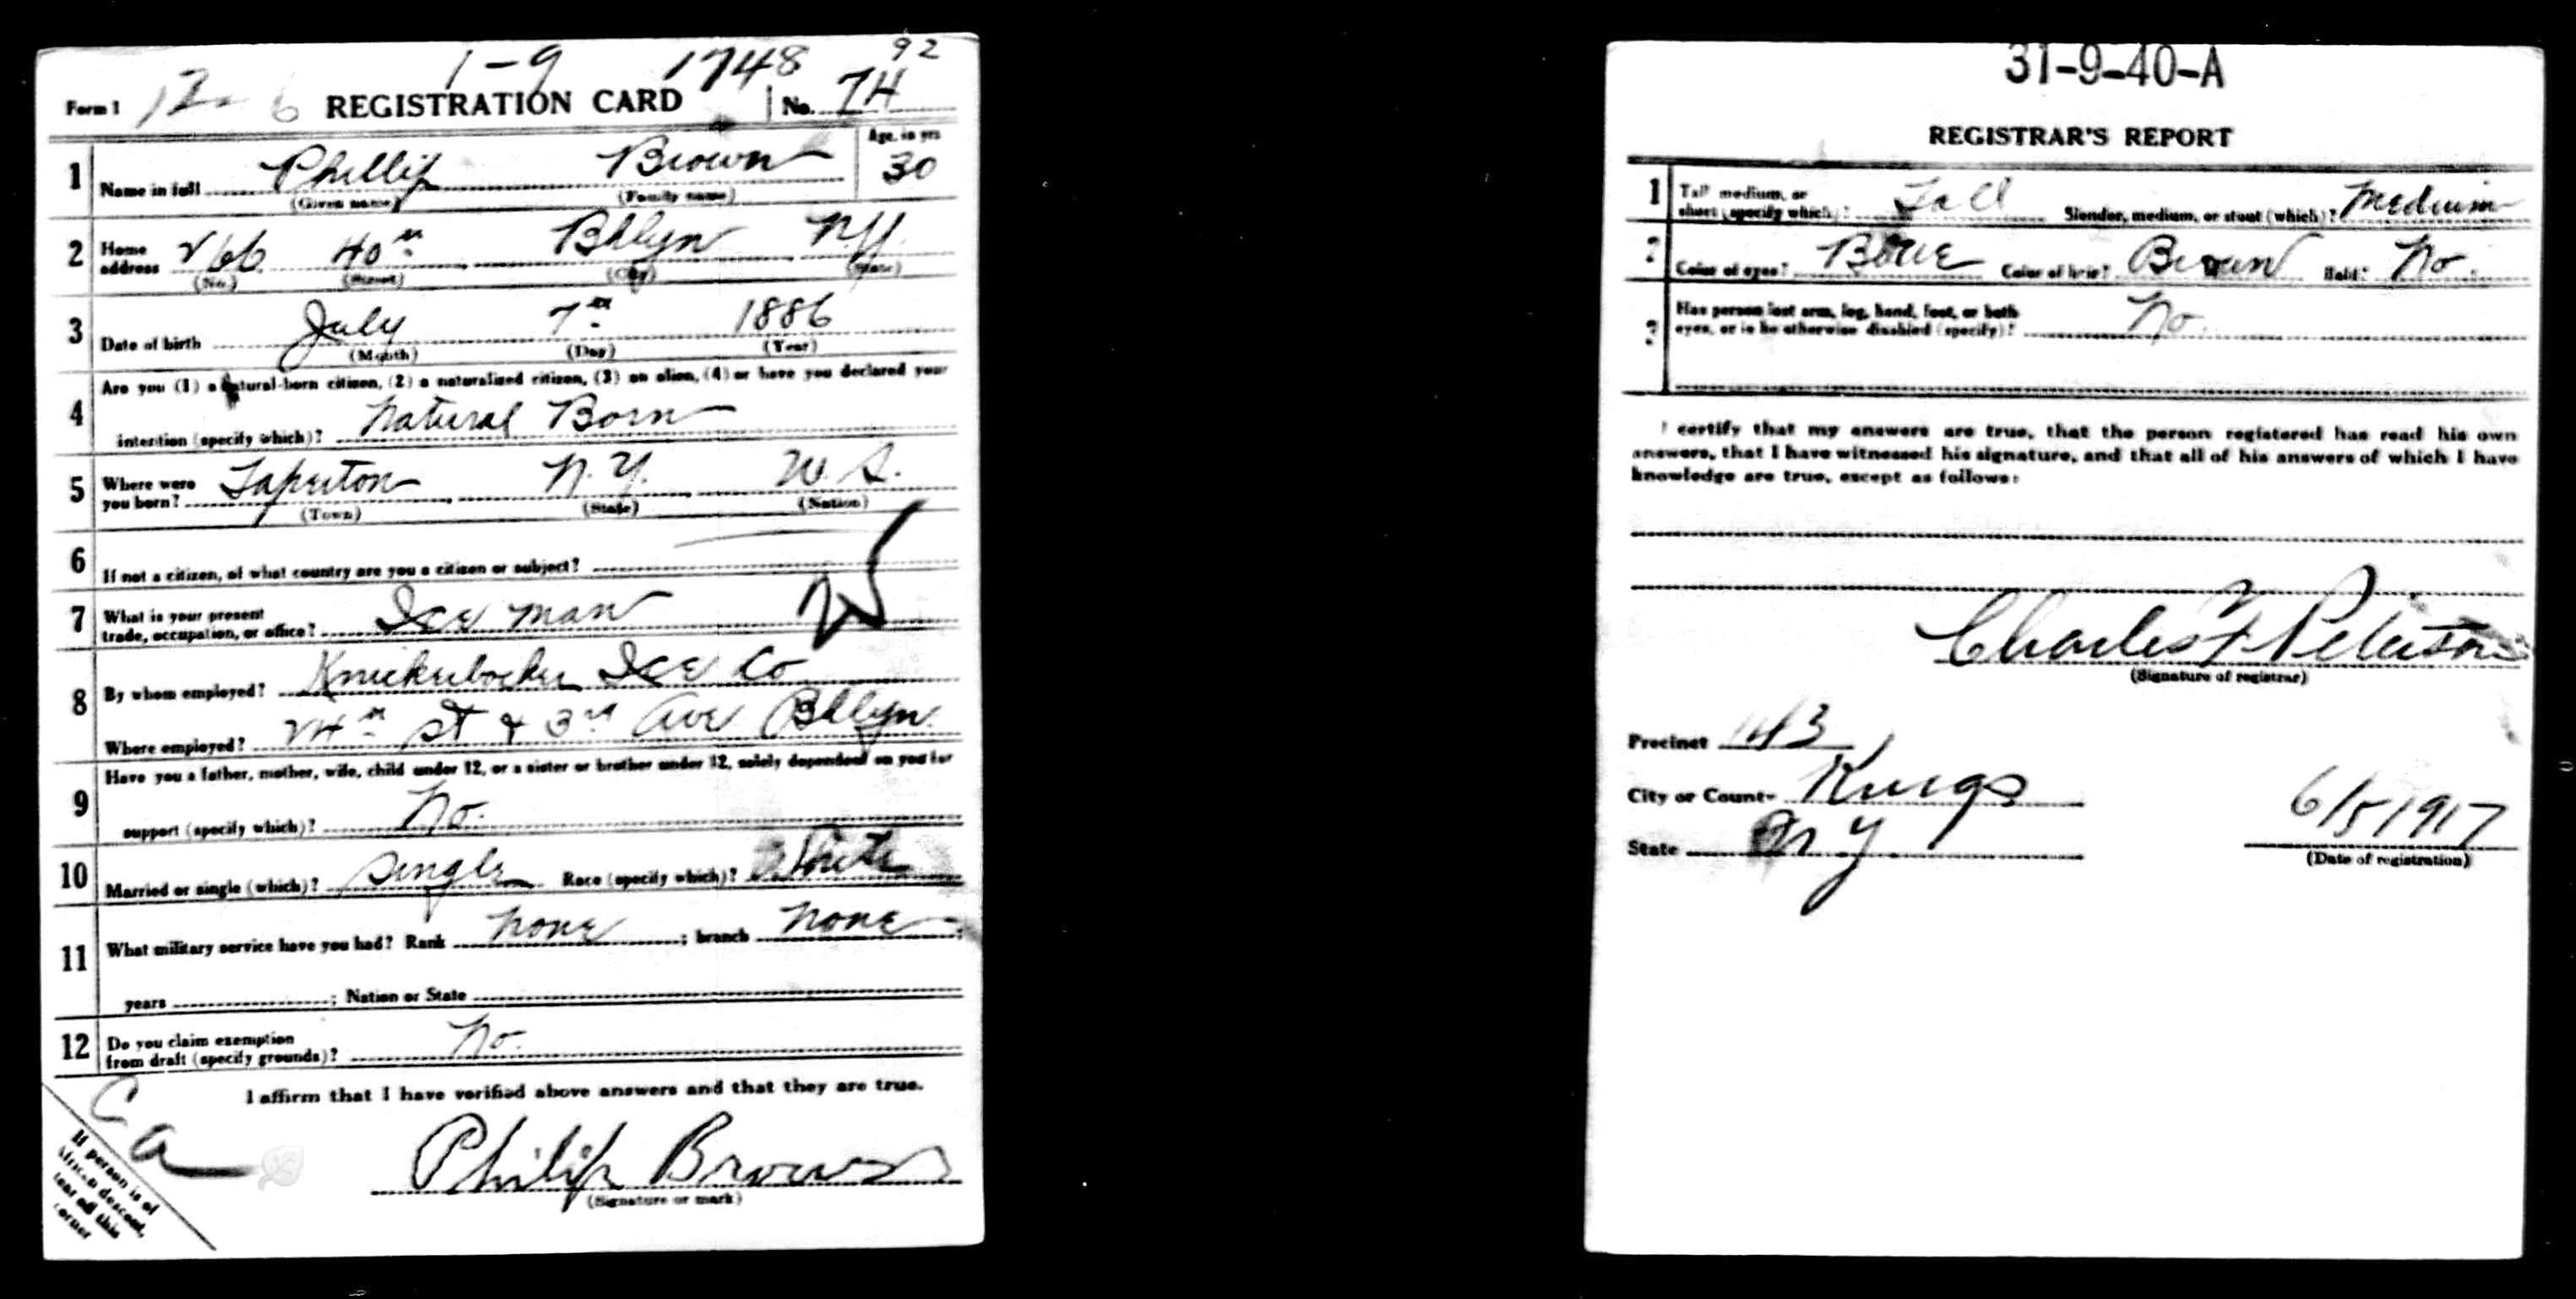 1-9 1748 92
Form 1 12- 6 REGISTRATION CARD No. 74
1 Name in full Phillip Brown Age, in yrs 30
(Given name) (Family name)
2 Home address 266 40th Bklyn N.Y.
(No.) (Street) (City) (State)
3 Date of birth July 7th 1886
(Month) (Day) (Year)
Are you (1) a natural-born citizen, (2) a naturalized citizen, (3) an alien, (4) or have you declared your
4 intention (specify which)? Natural Born
5 Where were you born? N.Y. U.S.
(Town) (State) (Nation)
6 If not a citizen, of what country are you a citizen or subject?
7 What is your present
trade, occupation, or office? Ice man
8 By whom employed? Knickerbocker Ice Co
Where employed? 24th St & 3rd Ave Bklyn.
Have you a father, mother, wife, child under 12, or a sister or brother under 12, solely dependent on you for
9 support (specify which)? No.
10 Married or single (which)? Single Race (specify which)? White
11 What military service have you had? Rank None ; branch None ;
years ; Nation or State
12 Do you claim exemption
from draft (specify grounds)? No.
I affirm that I have verified above answers and that they are true.
Philip Brown
(Signature or mark)
If person is of
African descent,
tear off this
corner
31-9-40-A
REGISTRAR'S REPORT
1 Tall medium, or
short (specify which)? Tall Slender, medium, or stout (which)? Medium
2 Color of eyes? Blue Color of hair? Brown Bald? No.
3 Has person lost arm, leg, hand, foot, or both
eyes, or is he otherwise disabled (specify)? No.
I certify that my answers are true, that the person registered has read his own
answers, that I have witnessed his signature, and that all of his answers of which I have
knowledge are true, except as follows:
Charles F Peterson
(Signature of registrar)
Precinct 143
City or County Kings
State N Y
6/5/1917
(Date of registration)